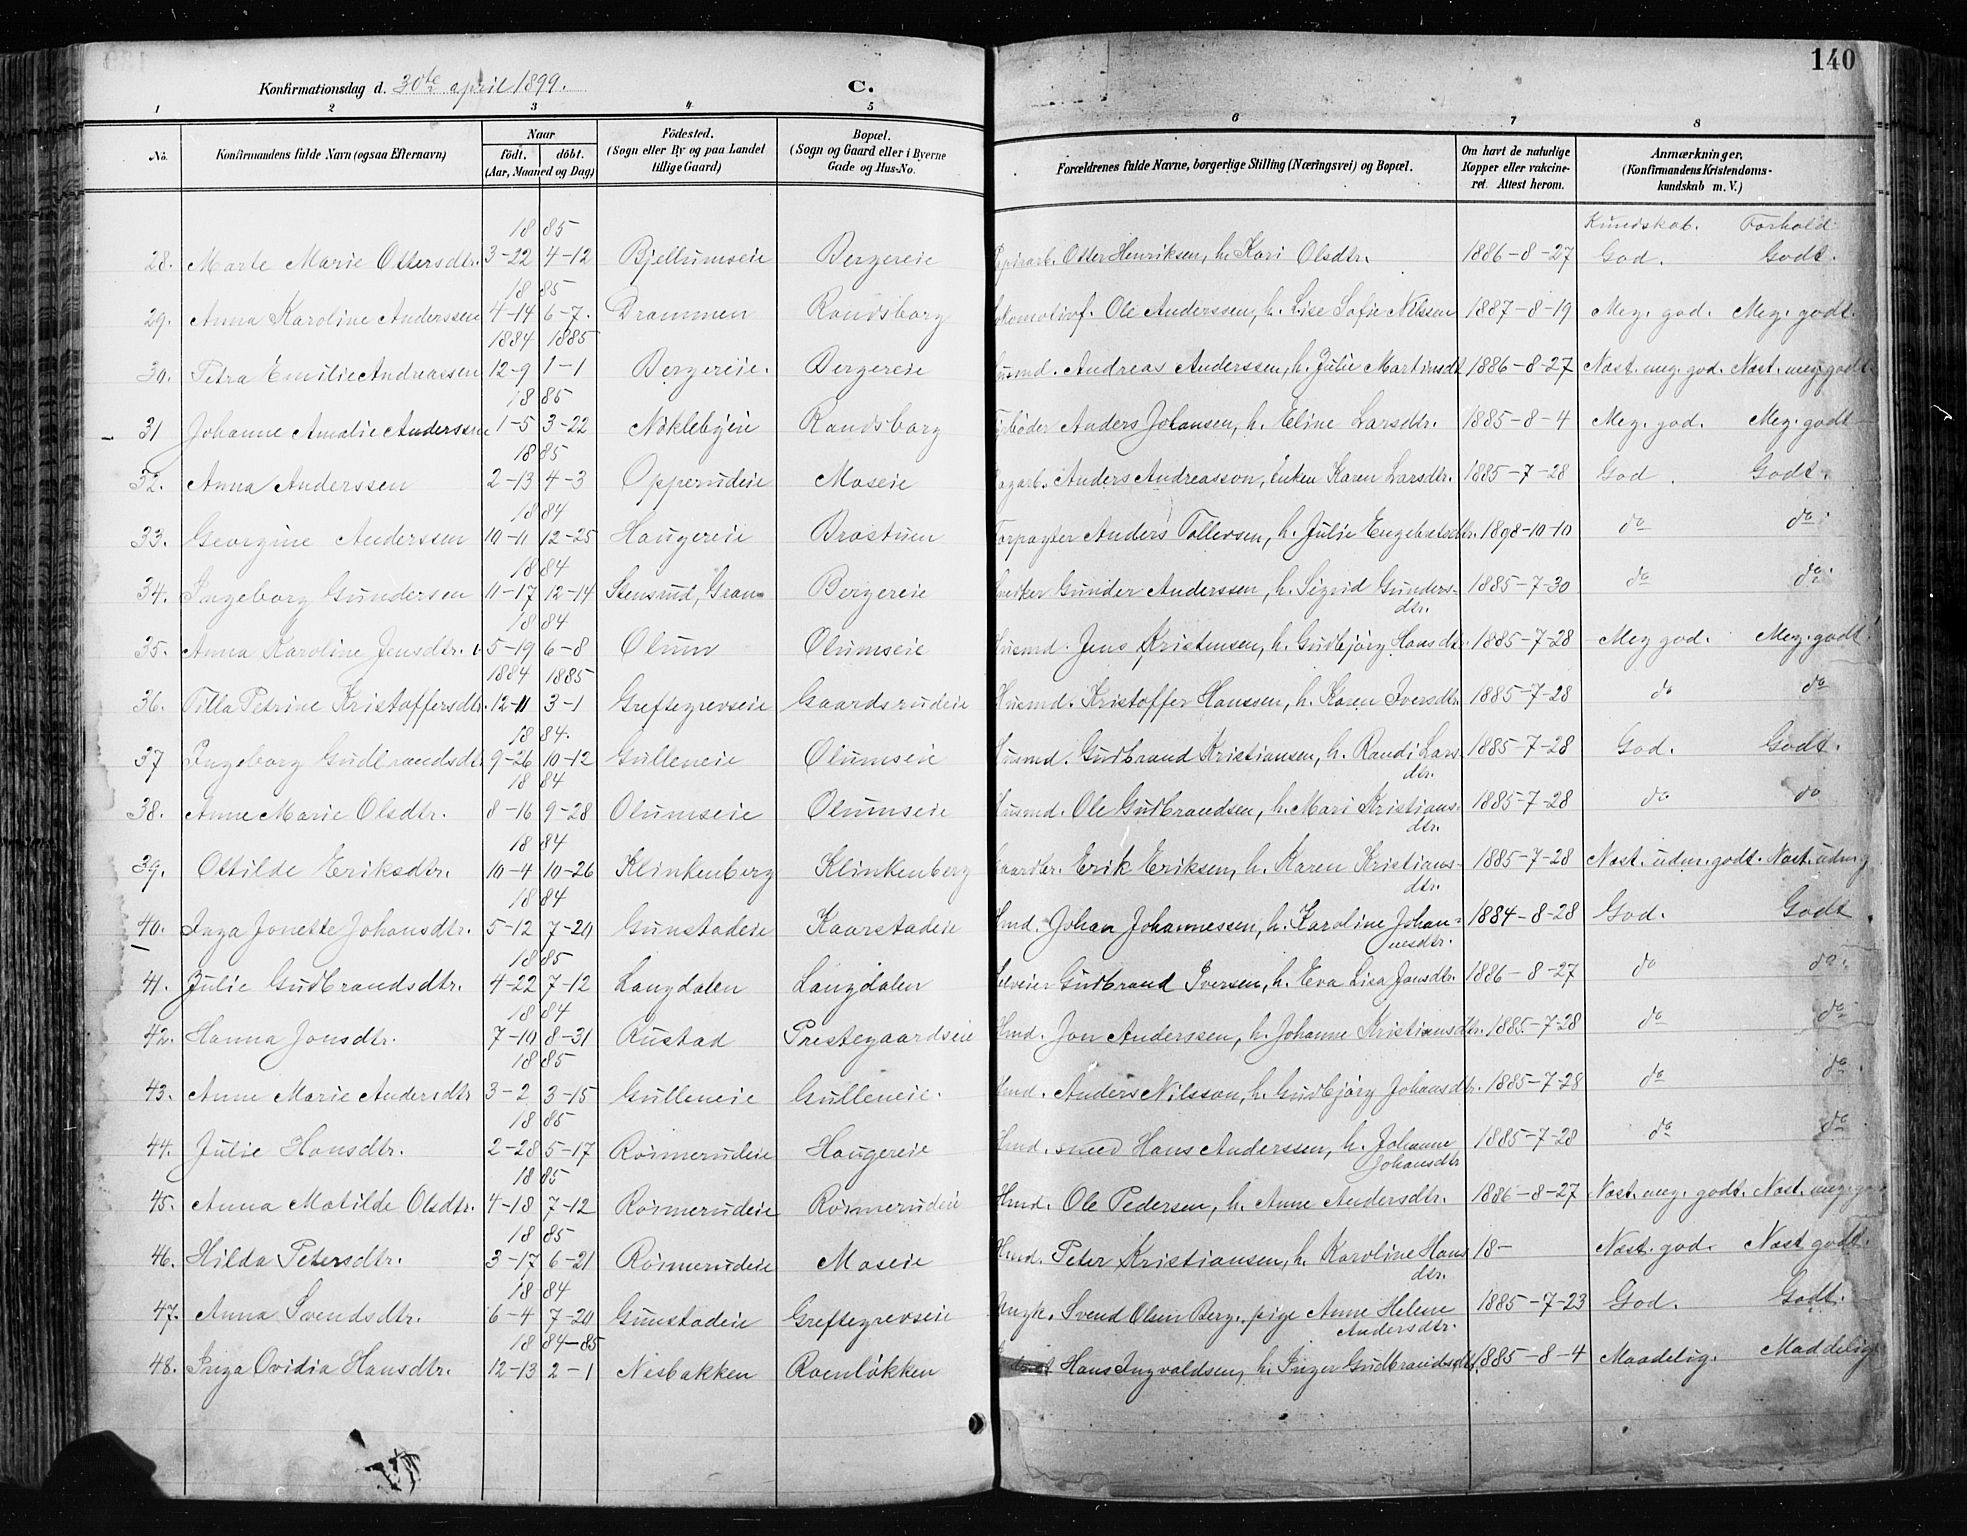 140
Konfirmationsdag d. 30te april 1899. C.
1 2 3 4 5 6 7 8
No. Konfirmandens fulde Navn (ogsaa Efternavn) Naar födt. döbt. (Aar, Maaned og Dag) Födested. (Sogn eller By og paa Landet tillige Gaard) Bopæl. (Sogn og Gaard eller i Byerne Gade og Hus-No. Forældrenes fulde Navne, borgerlige Stilling (Næringsvei) og Bopæl. Om havt de naturlige Kopper eller vakcineret. Attest herom. Anmærkninger, (Konfirmandens Kristendomskundskab m. V.)
Kundskab. Forhold
1885
28. Marte Marie Ottersdtr. 3-22 4-12 Bjellumseie Bergereie Otter Henriksen, h. Kari Olsdtr. 1886-8-27 God. Godt.
1885
29. Anna Karoline Anderssen 4-14 6-7. Drammen Randsborg Ole Anderssen, h. Lise Sofie Nilssen 1887-8-19 Meg. god. Meg. godt.
1884 1885
30. Petra Emilie Andreassen 12-9 1-1 Bergereie. Bergereie Andreas Anderssen, h. Julie Martinsdtr 1886-8-27 Næst. meg. god. Næst. meg. godt.
1885
31 Johanne Amalie Anderssen 1-5 3-22 Næklebyeie Randsborg Anders Johansen, h. Eline Larsdtr. 1885-8-4 Meg. god. Meg. godt
1885
32. Anna Anderssen 2-13 4-3 Opperudeie Moseie Anders Andreasson, Enken Karen Larsdtr. 1885-7-28 God. Godt.
1884
33. Georgine Anderssen 10-11 12-25 Haugereie Brostuen Anders Tollevsen, h. Julie Engebretsdtr. 1898-10-10 do do
1884
34. Ingeborg Gundersen 11-17 12-14 Stensrud, Gran Bergereie Gunder Anderssen, h. Sigrid Gundersdtr. 1885-7-30 do do
1884
35. Anna Karoline Jensdtr. 5-19 6-8 Olum Olumseie Husmd. Jens Kristensen, h. Gudbjörg Hansdtr. 1885-7-28 Meg god. Meg. godt
1884 1885
36. Tilla Petrine Kristoffersdtr. 12-11 3-1 Greftegrevseie Gaardsrudeie Husmd. Kristoffer Hanssen, h. Karen Iversdtr. 1885-7-28 do do
1884.
37 Ingeborg Gudbrandsdtr 9-26 10-12 Gulleneie Olumseie Husmd. Gudbrand Kristiansen, h. Randi Larsdtr. 1885-7-28 God. Godt.
1884
38. Anne Marie Olsdtr. 8-16 9-28 Olumseie Olumseie Husmd. Ole Gudbrandsen, h. Mari Kristiansdtr. 1885-7-28 do do
1884
39. Ottilde Eriksdtr. 10-4 10-26 Klinkenberg Klinkenberg Gaardbr. Erik Eriksen, h. Karen Kristiansdtr. 1885-7-28 Næst. udm. godt. Næst. udm g
1884
40. Inga Jonette Johansdtr. 5-12 7-20 Gunstadeie Kaarstadeie Hmd. Johan Johannessen, h. Karoline Johannesdtr. 1884-8-28 God. Godt.
1885
41. Julie Gudbrandsdtr. 4-22 7-12 Langdalen Langdalen Selveier Gudbrand Iversen, h. Eva Lisa Jonsdtr. 1886-8-27 do do
1884
42. Hanna Jonsdtr. 7-10 8-31 Rustad Prestegaardseie Hmd. Jon Anderssen, h. Johanne Kristiansdtr. 1885-7-28 do do
1885
43. Anne Marie Andersdtr 3-2 3-15 Gulleneie Gulleneie. Hmd. Anders Nilsson, h. Gudbjörg Johansdtr. 1885-7-28 do do
1885
44. Julie Hansdtr. 2-28 5-17 Roimerudeie Haugereie Hmd. smed Hans Anderssen, h. Johanne Johansdtr 1885-7-28 do do
1885
45. Anna Matilde Olsdtr. 4-18 7-12 Roimerudeie Roimerudeie Hmd. Ole Pedersen, h. Anne Andersdtr. 1886-8-27 Næst. meg. godt. Næst. meg. go
1885
46. Hilda Petersdtr. 3-17 6-21 Roimerudeie Moseie Hmd. Peter Kristiansen, h. Karoline Hansdtr. 18- Næst. god. Næst godt.
1884
47. Anna Svendsdtr. 6-4 7-20 Gunstadeie Greftegrevseie Ungk. Svend Olsen Berg, pige Anne Helene Andersdtr. 1885-7-23 God. Godt.
1884-85
48. Inga Ovidia Hansdtr. 12-13 2-1 Nesbakken Roenløkken Hans Ingvaldsen, h. Inger Gudbrandsdtr. 1885-8-4 Maadelig. Maadelig